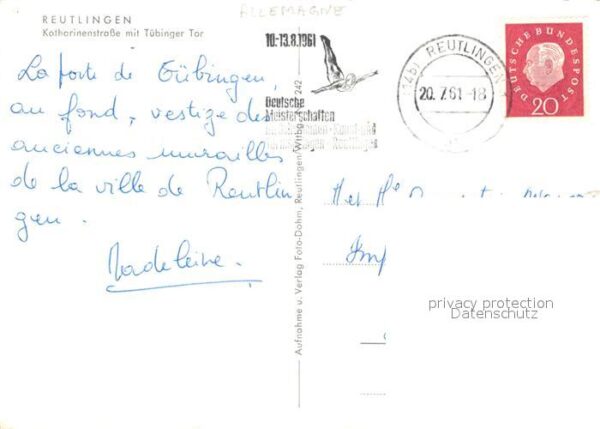 REUTLINGEN
Katharinenstraße mit Tübinger Tor
ALLEMAGNE
10.-13.8.1961
Deutsche
Meisterschaften
(14b) REUTLINGEN
20.7.61-18
DEUTSCHE BUNDESPOST
20
La porte de Tübingen,
au fond, vestige des
anciennes murailles
de la ville de Reutlin
gen.
Madeleine.
Aufnahme u. Verlag Foto-Dohm, Reutlingen/Wttbg. 242
privacy protection
Datenschutz